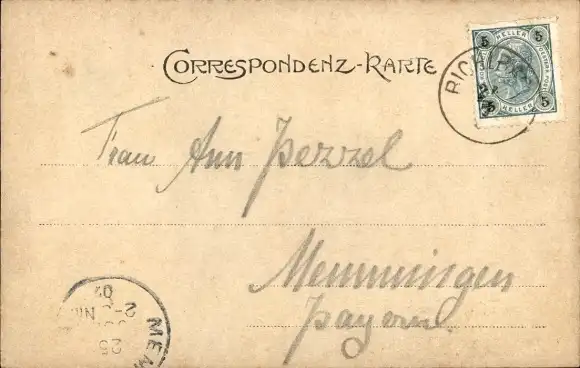 CORRESPONDENZ-KARTE
5 HELLER 5
5 HELLER 5
Frau Ann Pezzel
Memmingen
Bayern
MEM
25
2-3 N